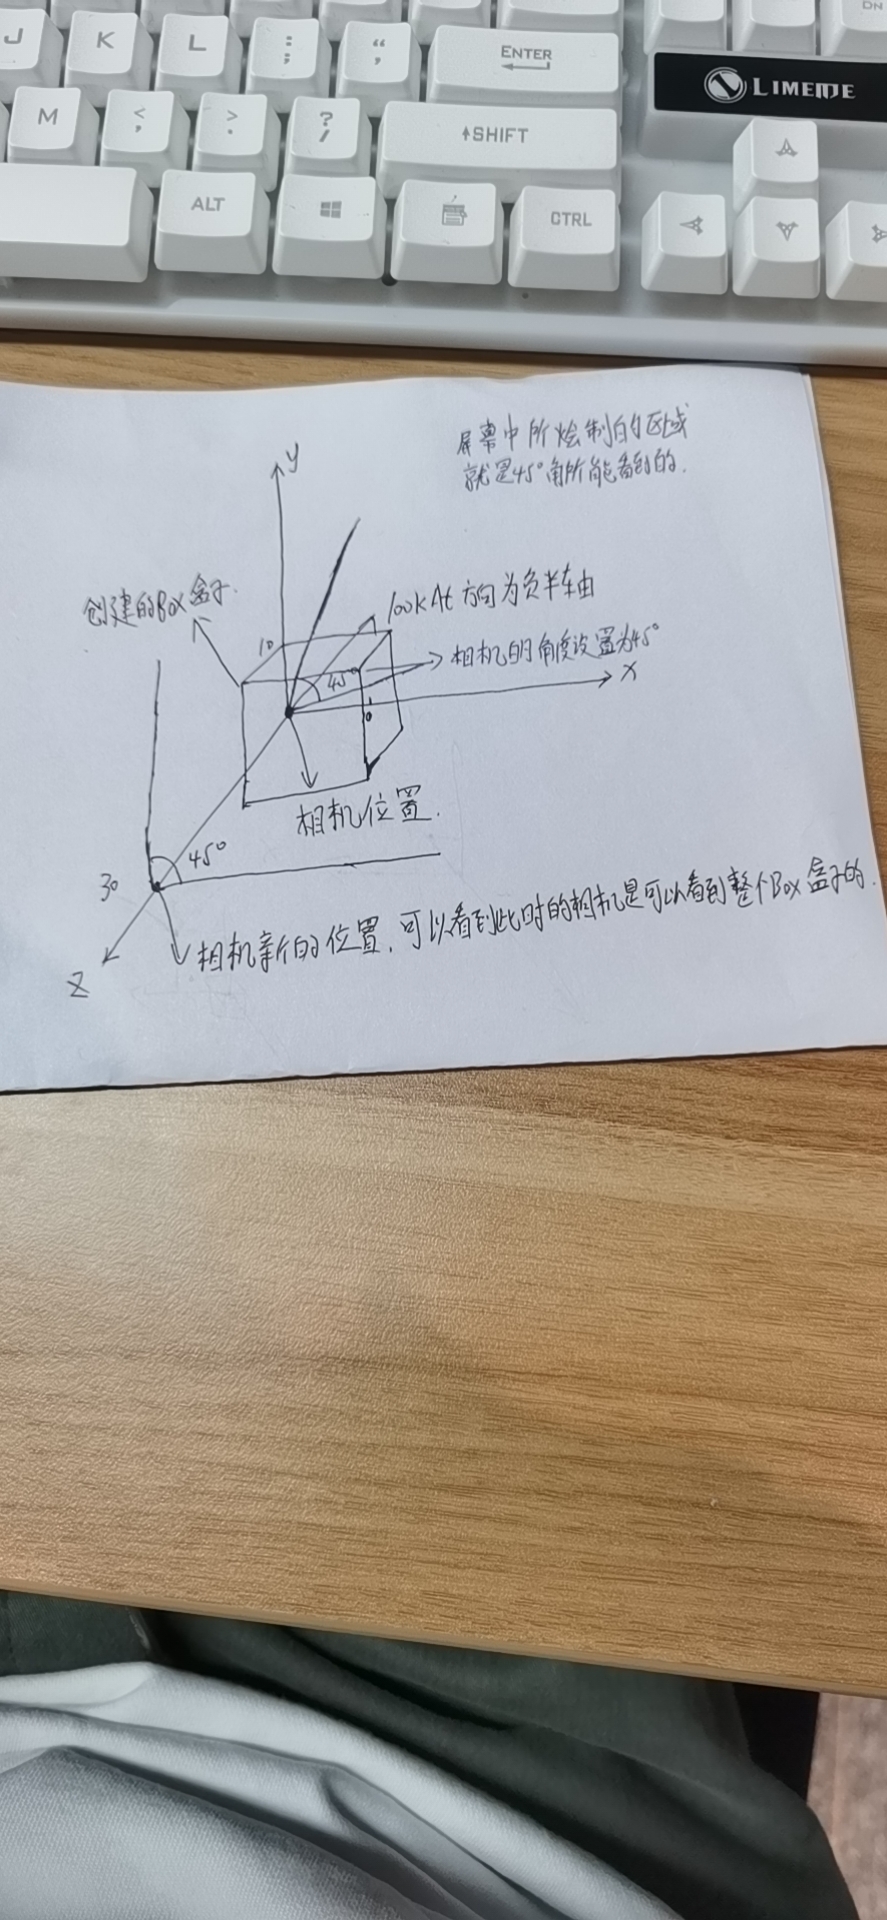 J
K
L
:
;
“
,
ENTER
DN
LIMEIDE
M
<
,
>
.
?
/
SHIFT
ALT
CTRL
屏幕中所绘制的区域
就是45°角所能看到的.
y
创建的Box盒子.
lookAt 方向为负半轴
10
相机的角度设置为45°
45°
X
10
相机位置.
45°
30
相机新的位置,可以看到此时的相机是可以看到整个Box盒子的.
Z